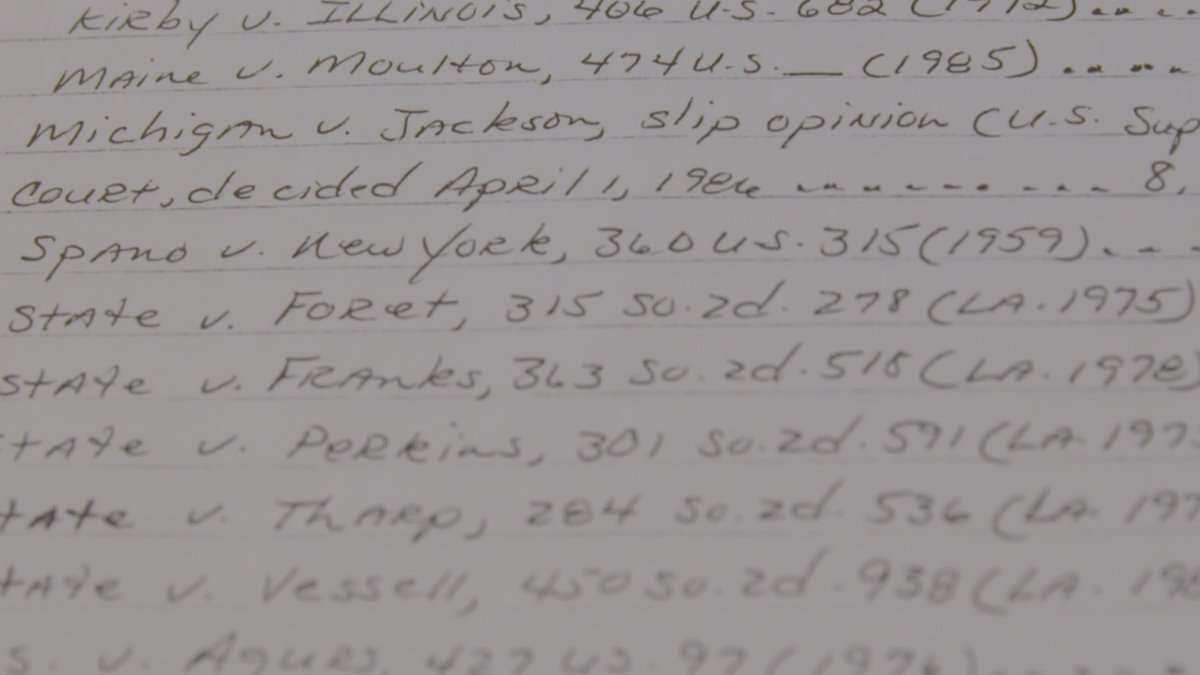 Kirby v. Illinois, 406 U.S. 682 (1972)....
Maine v. Moulton, 474 U.S. __ (1985) .....
Michigan v. Jackson, slip opinion (U.S. Sup
Court, decided April 1, 1986 .......... 8,
Spano v. New York, 360 U.S. 315 (1959)...
State v. Foret, 315 So.2d. 278 (LA. 1975)
State v. Franks, 363 So.2d. 518 (LA. 1978)
tate v. Perkins, 301 So.2d. 591 (LA. 197
tate v. Tharp, 284 So.2d. 536 (LA. 197
tate v. Vessell, 450 So.2d. 938 (LA. 198
s. v. Agurs, 427 U.S. 97 (1976).....